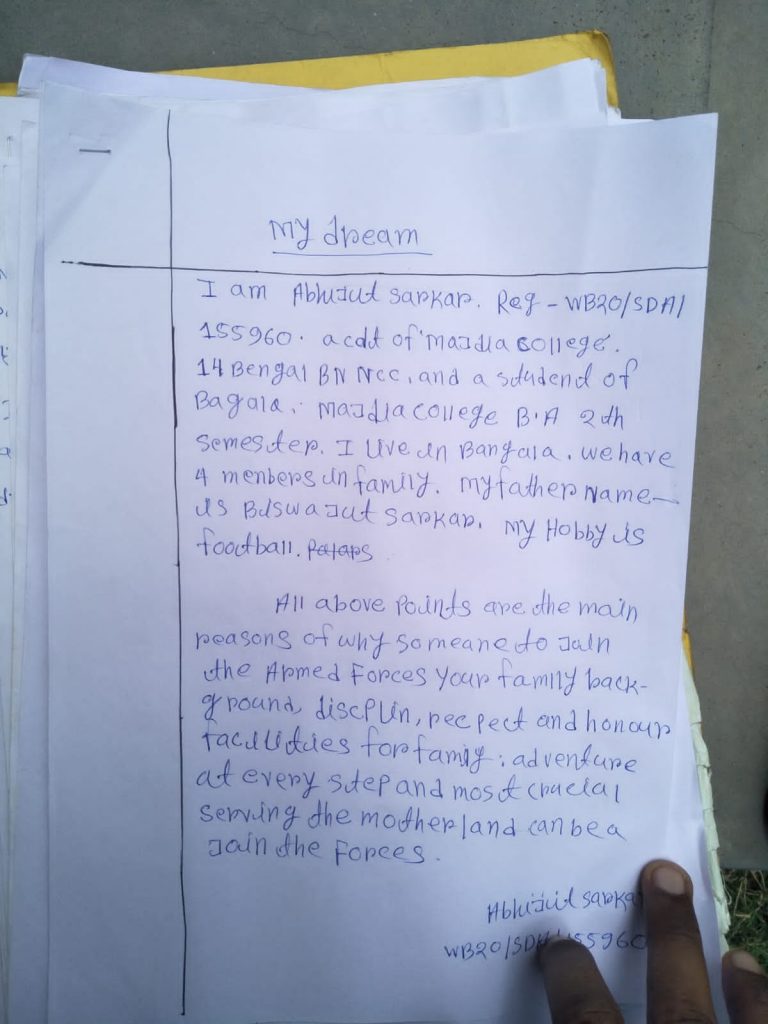 My dream
I am Abhijit Sarkar. Reg - WB20/SDA/
155960. a cdt of "Majdia College".
14 Bengal BN NCC, and a studend of
Bagala. Majdia College B.A 2th
semester. I live in Bangala. we have
4 menbers in family. My father name
is Biswajit Sarkar. My Hobby is
football.
All above Points are the main
reasons of why someane to Jain
the Armed Forces your family back-
ground, discplin, recpect and honour
facilities for famiy; adventure
at every step and most crucial
serving the motherland can be a
Jain the Forces.
Abhijit Sarka
WB20/SDA/155960